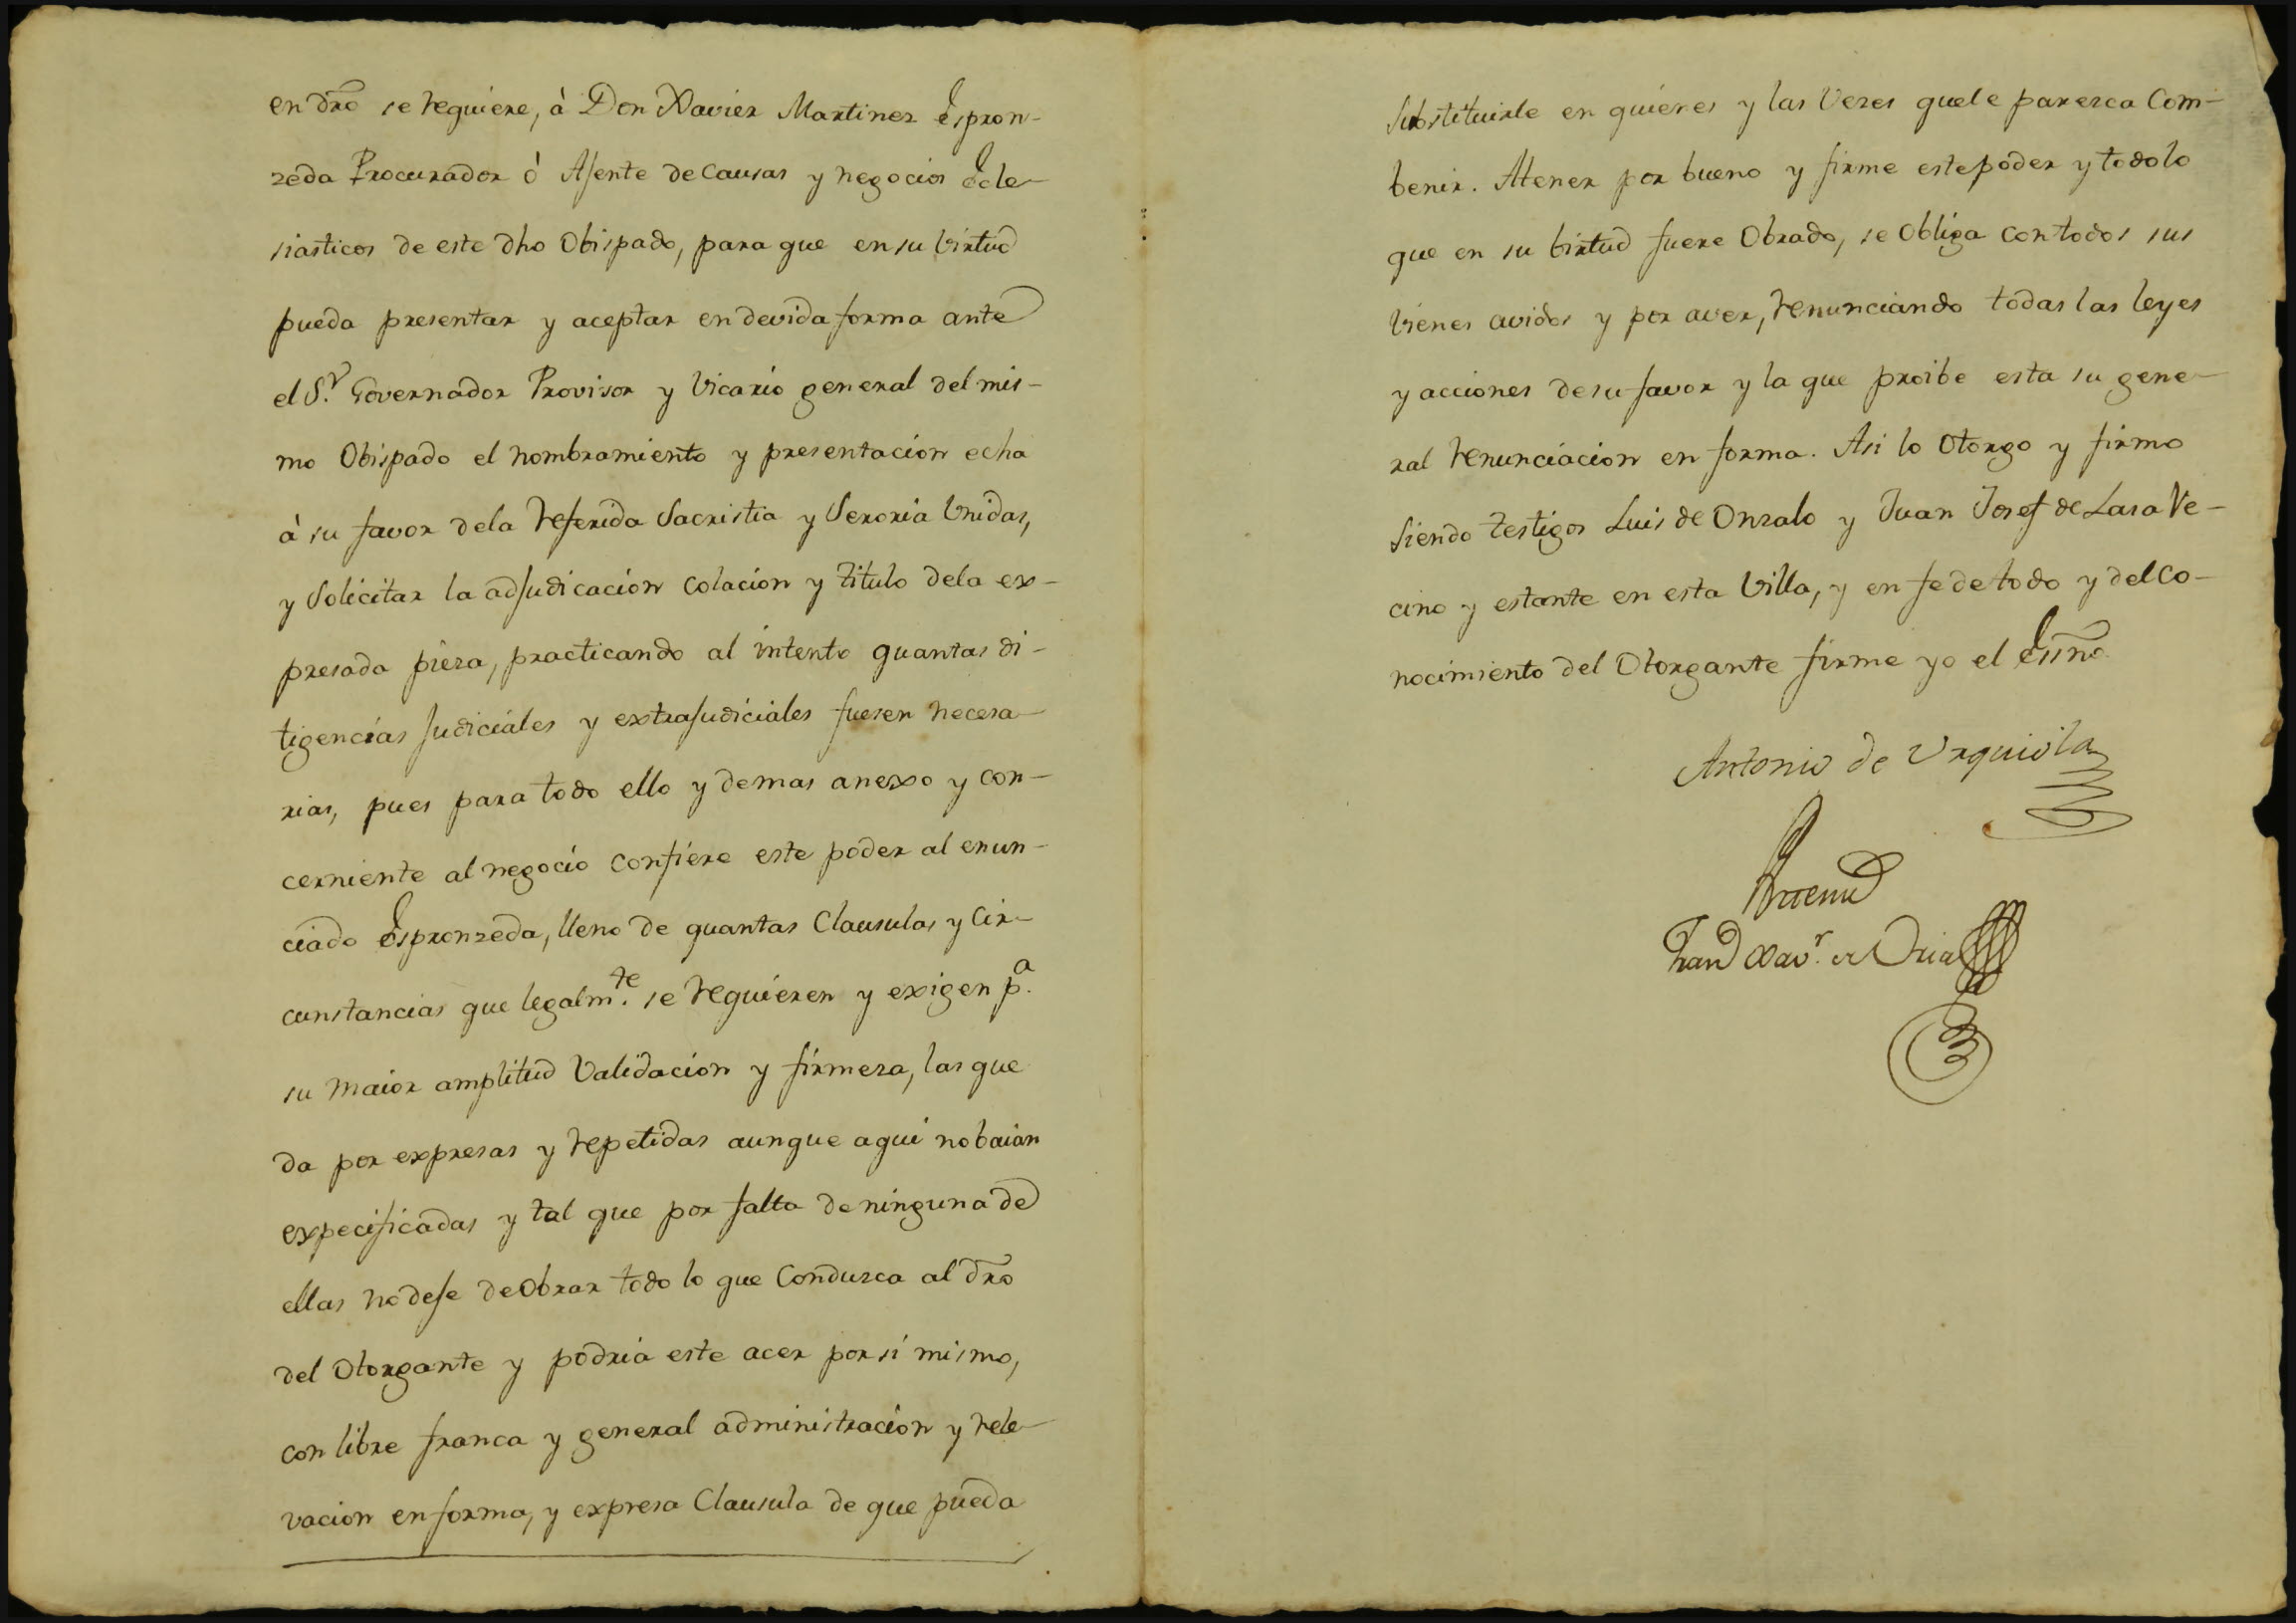 en dro se requiere, à Don Xavier Martinez Espron-
zeda Procurador ò Ajente de causas y negocios Ecle-
siasticos de este dho Obispado, para que en su virtud
pueda presentar y aceptar en devida forma ante
el S.r Governador Provisor y Vicario general del mis-
mo Obispado el nombramiento y presentacion echa
à su favor dela referida Sacristia y Seroria Unidas,
y Solicitar la adjudicacion colacion y titulo dela ex-
presada pieza, practicando al intento quantas di-
ligencias Judiciales y extrajudiciales fuesen necesa-
rias, pues para todo ello y demas anexo y con-
cerniente al negocio confiere este poder al enun-
ciado Espronzeda, lleno de quantas Clausulas y Cir-
cunstancias que legalm.te se requieren y exigen p.a
su maior amplitud Validacion y firmeza, las que
da por expresas y repetidas aunque aqui no baian
expecificadas y tal que por falta de ninguna de
ellas no deje de Obrar todo lo que Conduzca al dro
del Otorgante y podria este acer por si mismo,
con libre franca y general administracion y rele-
vacion en forma, y expresa Clausula de que pueda
Substituirle en quienes y las Vezes quele parezca Com-
benir. Atener por bueno y firme este poder y todo lo
que en su birtud fuere Obrado, se Obliga con todos sus
vienes avidos y por aver, renunciando todas las leyes
y acciones de su favor y la que proibe esta su gene-
ral renunciacion en forma. Asi lo Otorgo y firmo
Siendo testigos Luis de Onzalo y Juan Josef de Lasa Ve-
cino y estante en esta Villa, y en fe de todo y del Co-
nocimiento del Otorgante firme yo el Essno
Antonio de Urquiola
Antemi
Fran Xav.r de Oria